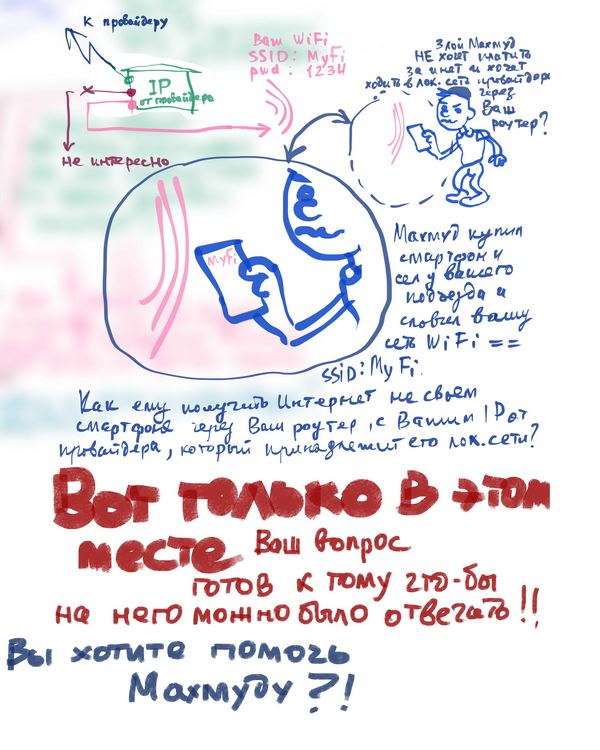 к провайдеру
IP
от провайдера
не интересно
Ваш WiFi
SSID: MyFi
pwd: 1234
Злой Махмуд
НЕ хочет платить
за инет и хочет
ходить в лок. сеть провайдера
через
Ваш
роутер?
MyFi
Махмуд купил
смартфон и
сел у вашего
подъезда и
словил вашу
сеть WiFi ==
SSiD: My Fi.
Как ему получить Интернет на своем
смартфоне через Ваш роутер, с Вашим IP от
провайдера, который принадлежит его лок. сети?
Вот только в этом
месте Ваш вопрос
готов к тому что-бы
на него можно было отвечать!!
Вы хотите помочь
Махмуду?!